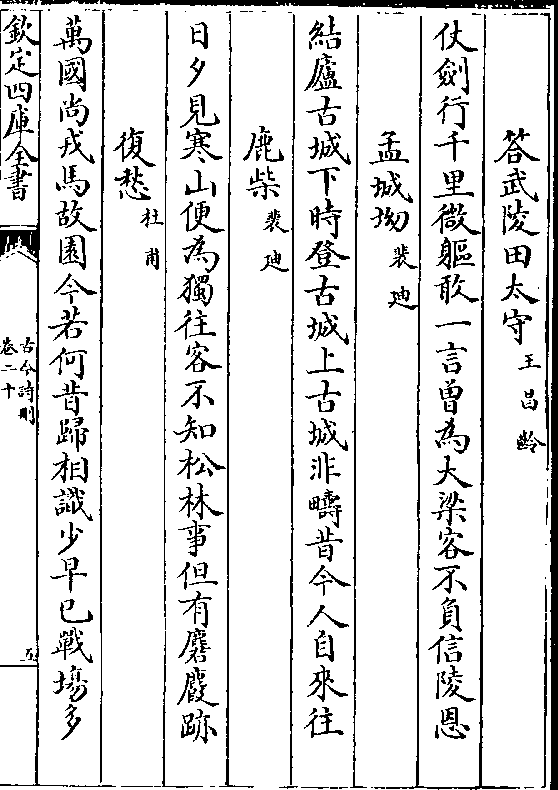 答武陵田太守王昌齡
仗劍行千里微軀敢一言曾為大梁客不負信陵恩
孟城坳裴迪
結廬古城下時登古城上古城非疇昔今人自來往
鹿柴裴迪
日夕見寒山便為獨往客不知松林事但有麏麚跡
復愁杜甫
萬國尚戎馬故園今若何昔歸相識少早已戰塲多
欽定四庫全書
古今詩刪
卷二十
五